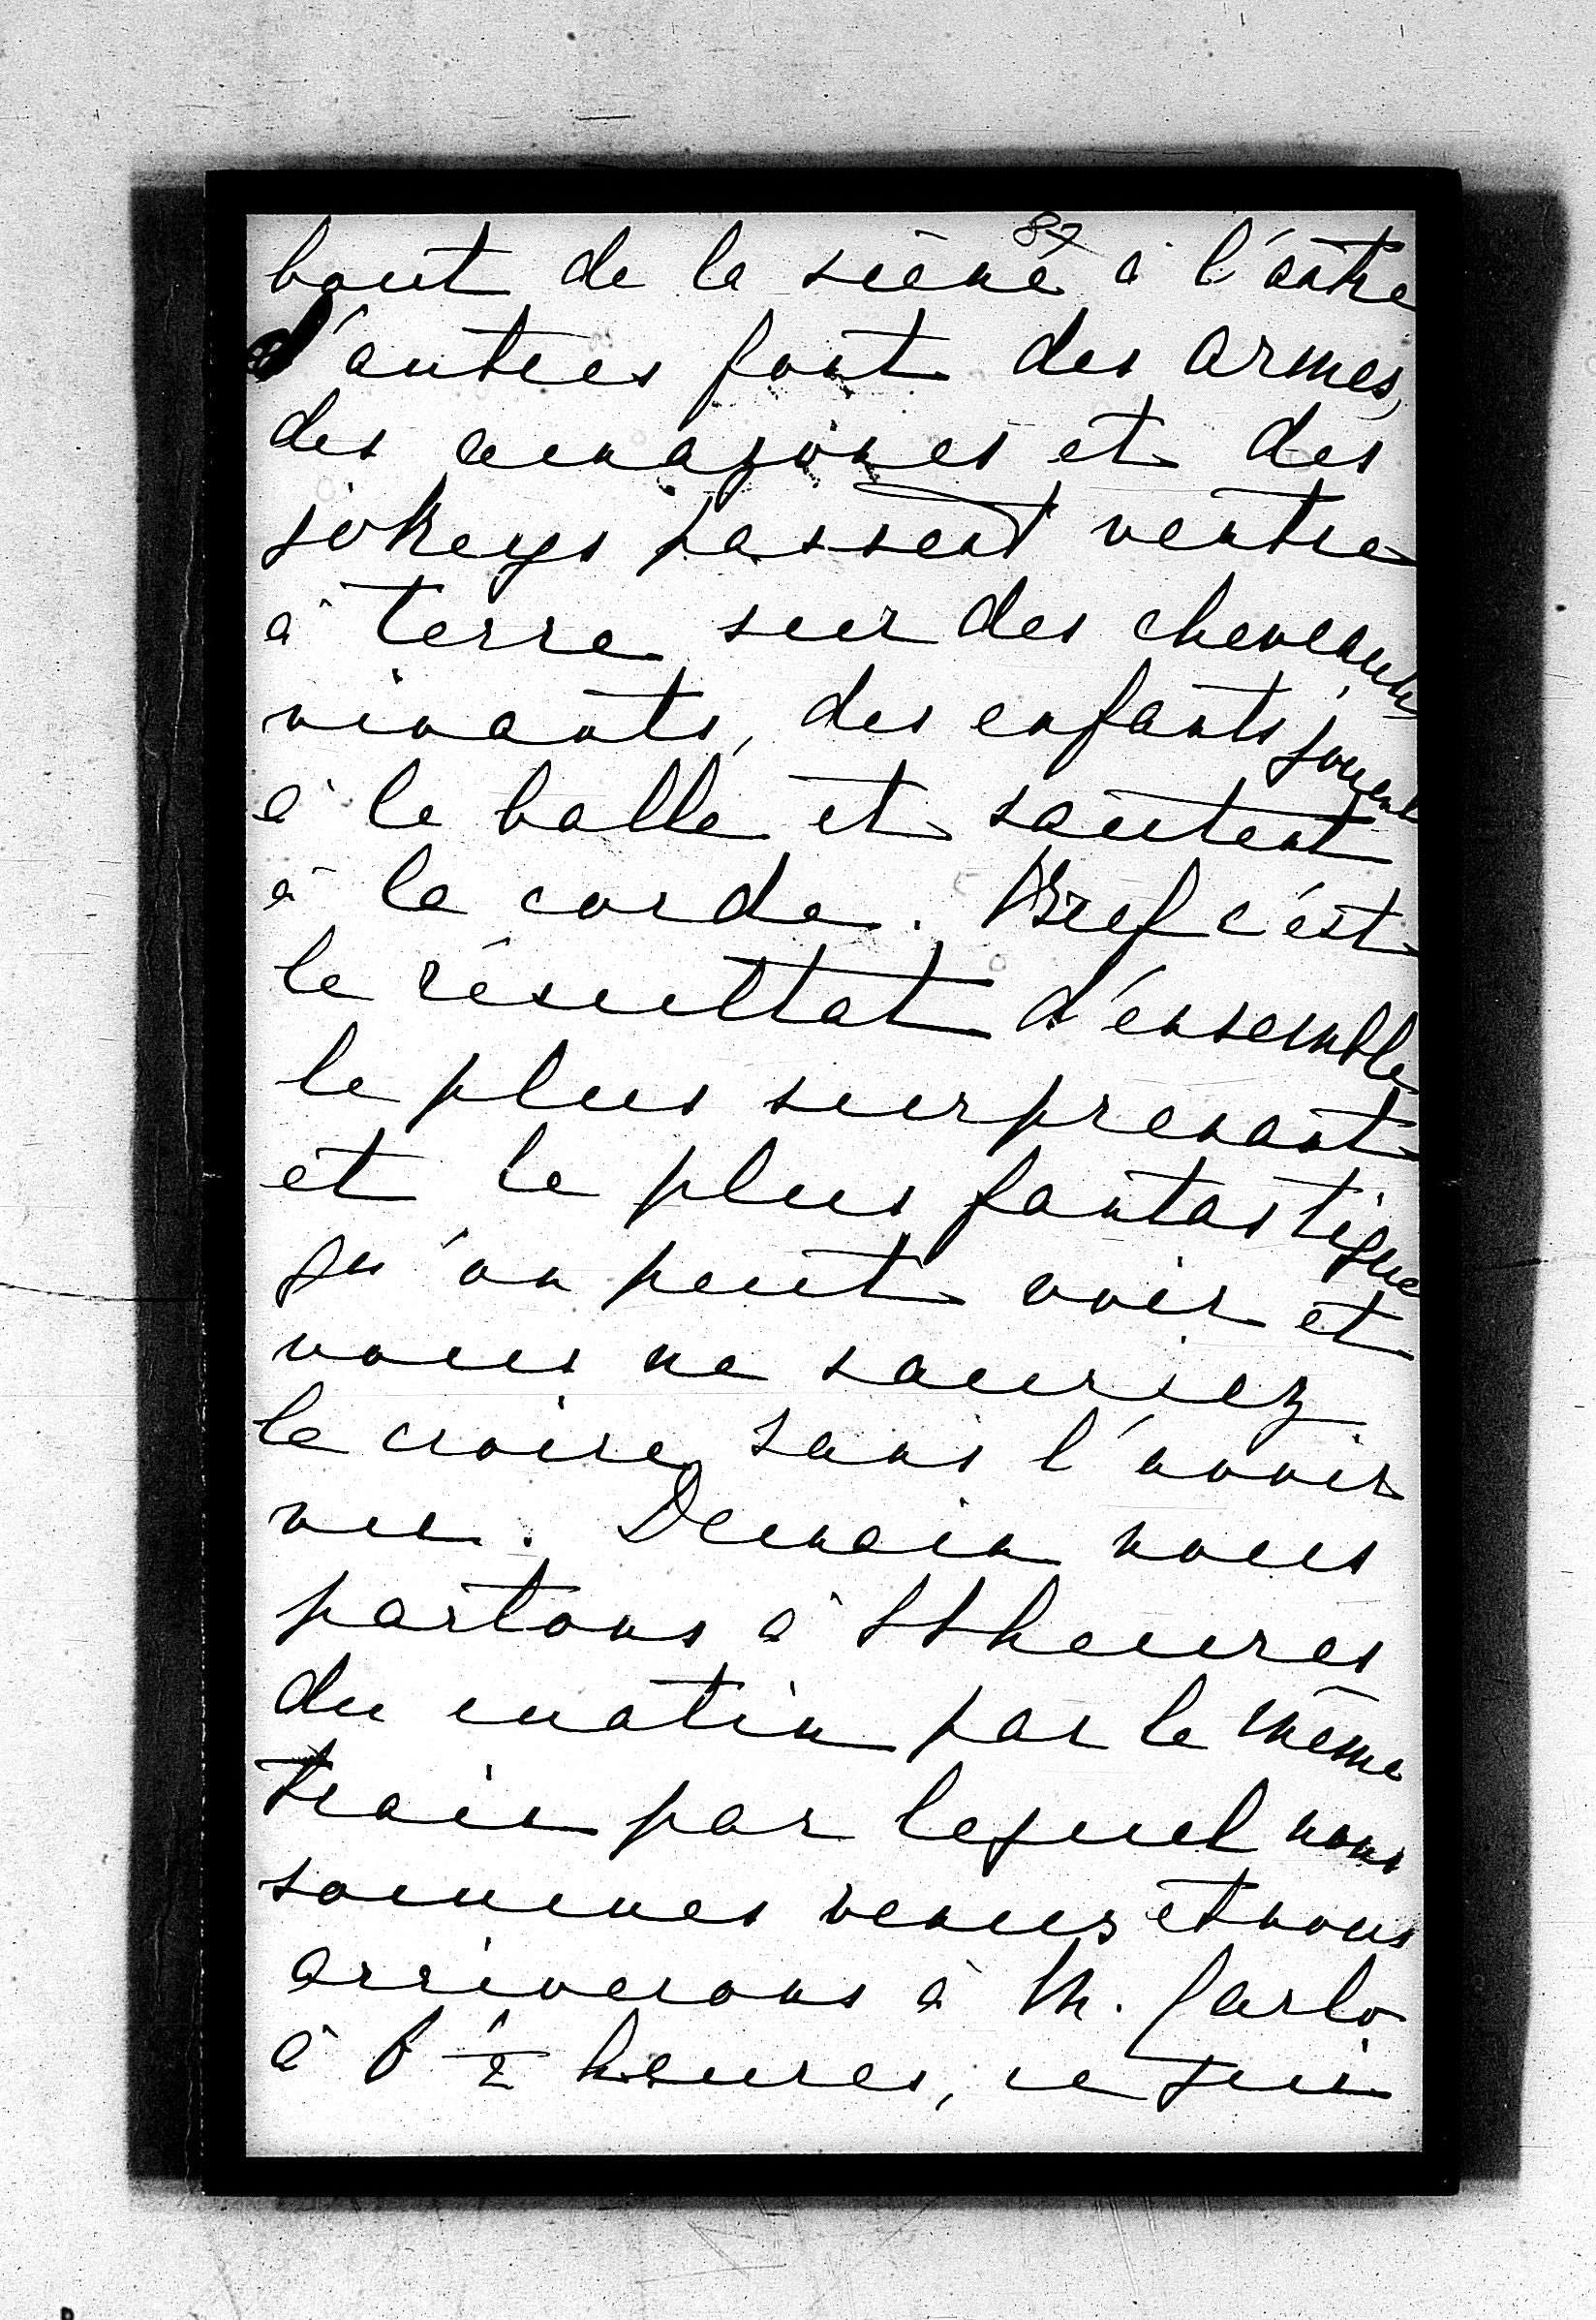 87
bout de la siène à l'autre
d'autres font des armes,
des amazones et des
jokeys passent ventre
à terre sur des cheveaux
vivants, des enfants jouent
à la balle et sautent
à la corde. Bref c'est
le résultat d'ensemble
le plus surprenant
et le plus fantastique
qu'on peut voir et
vous ne sauriez
le croire sans l'avoir
vu. Demain nous
partons à heures
du matin par le même
train par lequel nous
sommes venus et nous
arriverons à M. Carlo
à ½ heures, ce qui